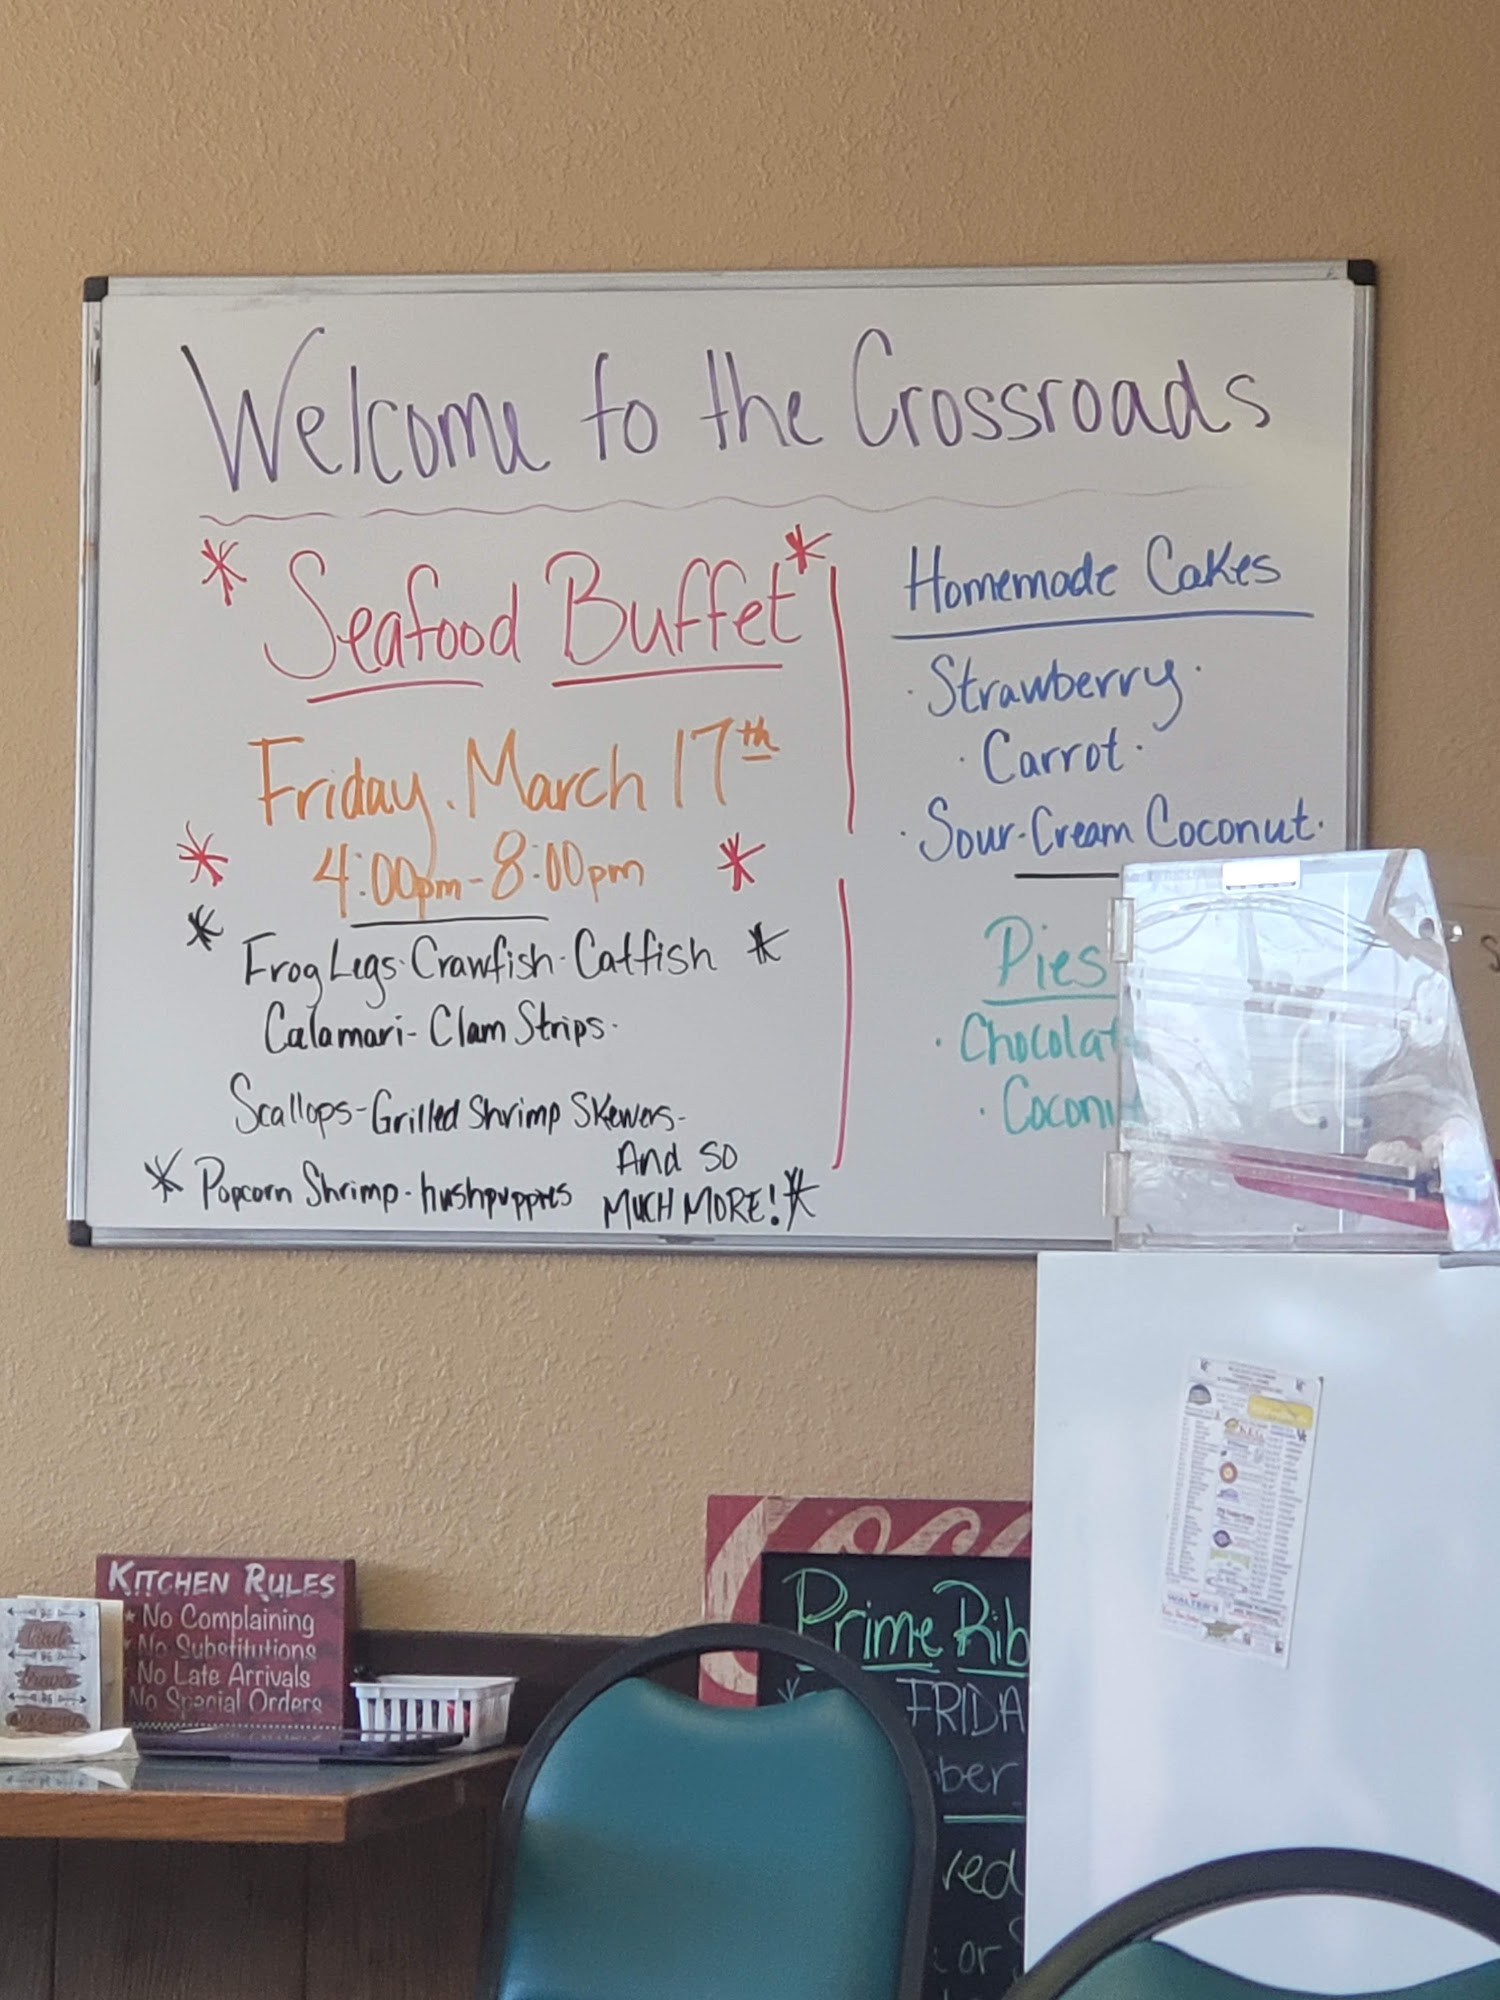 Welcome to the Crossroads
* Seafood Buffet *
Friday. March 17th
* 4:00pm-8:00pm *
* Frog Legs · Crawfish · Catfish *
Calamari - Clam Strips ·
Scallops - Grilled Shrimp Skewers -
* Popcorn Shrimp - hushpuppies And so
MUCH MORE! *
Homemade Cakes
· Strawberry ·
· Carrot ·
· Sour-Cream Coconut ·
Pies
· Chocolat
· Coconu
KITCHEN RULES
* No Complaining
* No Substitutions
No Late Arrivals
No Special Orders
Prime Rib
FRIDA
ber
red
or
WALTER'S